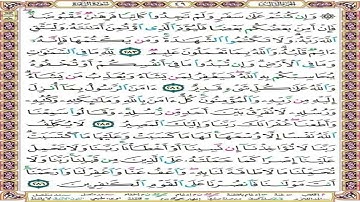 ۞ وَإِن كُنتُمْ عَلَىٰ سَفَرٍ وَلَمْ تَجِدُوا۟ كَاتِبًا فَرِهَـٰنٌ مَّقْبُوضَةٌ
فَإِنْ أَمِنَ بَعْضُكُم بَعْضًا فَلْيُؤَدِّ ٱلَّذِى ٱؤْتُمِنَ أَمَـٰنَتَهُۥ وَلْيَتَّقِ
ٱللَّهَ رَبَّهُۥ وَلَا تَكْتُمُوا۟ ٱلشَّهَـٰدَةَ وَمَن يَكْتُمْهَا فَإِنَّهُۥٓ
ءَاثِمٌ قَلْبُهُۥ وَٱللَّهُ بِمَا تَعْمَلُونَ عَلِيمٌ ٢٨٣ لِّلَّهِ مَا فِى ٱلسَّمَـٰوَٰتِ
وَمَا فِى ٱلْأَرْضِ وَإِن تُبْدُوا۟ مَا فِىٓ أَنفُسِكُمْ أَوْ تُخْفُوهُ
يُحَاسِبْكُم بِهِ ٱللَّهُ فَيَغْفِرُ لِمَن يَشَآءُ وَيُعَذِّبُ مَن يَشَآءُ
وَٱللَّهُ عَلَىٰ كُلِّ شَىْءٍ قَدِيرٌ ٢٨٤ ءَامَنَ ٱلرَّسُولُ بِمَآ أُنزِلَ
إِلَيْهِ مِن رَّبِّهِۦ وَٱلْمُؤْمِنُونَ كُلٌّ ءَامَنَ بِٱللَّهِ وَمَلَـٰٓئِكَتِهِۦ وَكُتُبِهِۦ
وَرُسُلِهِۦ لَا نُفَرِّقُ بَيْنَ أَحَدٍ مِّن رُّسُلِهِۦ وَقَالُوا۟ سَمِعْنَا
وَأَطَعْنَا غُفْرَانَكَ رَبَّنَا وَإِلَيْكَ ٱلْمَصِيرُ ٢٨٥ لَا يُكَلِّفُ
ٱللَّهُ نَفْسًا إِلَّا وُسْعَهَا لَهَا مَا كَسَبَتْ وَعَلَيْهَا مَا ٱكْتَسَبَتْ
رَبَّنَا لَا تُؤَاخِذْنَآ إِن نَّسِينَآ أَوْ أَخْطَأْنَا رَبَّنَا وَلَا تَحْمِلْ
عَلَيْنَآ إِصْرًا كَمَا حَمَلْتَهُۥ عَلَى ٱلَّذِينَ مِن قَبْلِنَا رَبَّنَا وَلَا
تُحَمِّلْنَا مَا لَا طَاقَةَ لَنَا بِهِۦ وَٱعْفُ عَنَّا وَٱغْفِرْ لَنَا وَٱرْحَمْنَآ
أَنتَ مَوْلَىٰنَا فَٱنصُرْنَا عَلَى ٱلْقَوْمِ ٱلْكَـٰفِرِينَ ٢٨٦